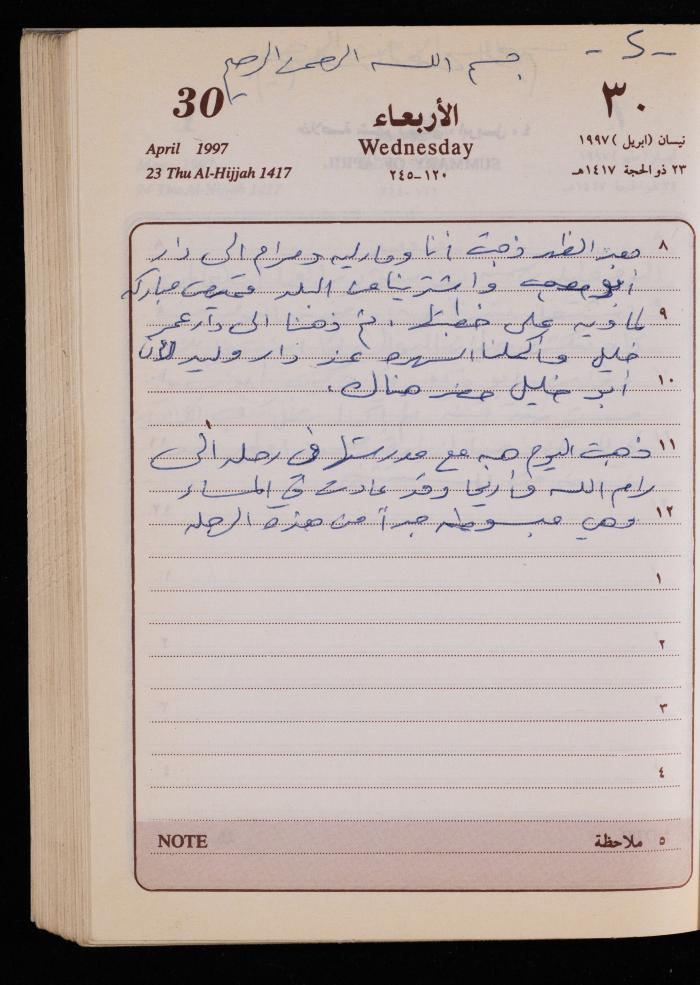 -٢-
بسم الله الرحمن الرحيم
30
الأربعاء
٣٠
April 1997
Wednesday
نيسان (ابريل) ١٩٩٧
23 Thu Al-Hijjah 1417
١٢٠-٢٤٥
٢٣ ذو الحجة ١٤١٧هـ
٨ بعد الظهر ذهبت أنا وماريه ومرام الى دار
أبو واشترينا من البلد قميص مباركه
٩ لماويه على خطبتها . ثم ذهبنا الى دار عمر
خليل وأكملنا السهره عند دار وليد لأن
١٠ أبو خليل حضر هناك .
١١ ذهبت اليوم هبه مع مدرستها في رحله الى
رام الله وأريحا وقد عادت في المساء
١٢ وهي مبسوطه جداً من هذه الرحله
١
٢
٣
٤
NOTE
٥ ملاحظة